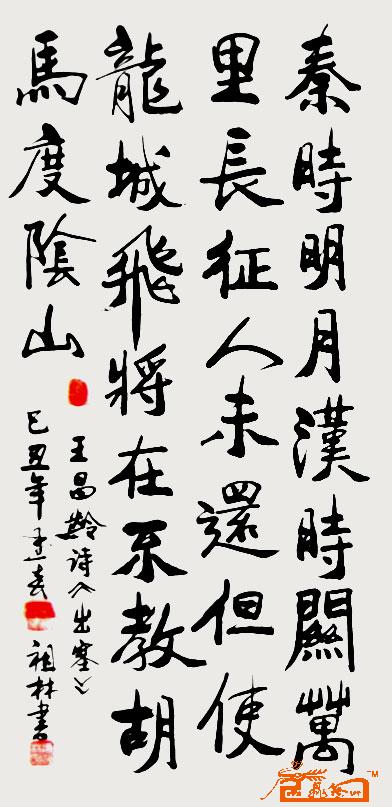 秦時明月漢時關萬
里長征人未還但使
龍城飛將在不教胡
馬度陰山
王昌齡詩《出塞》
己丑年 春 祖林書